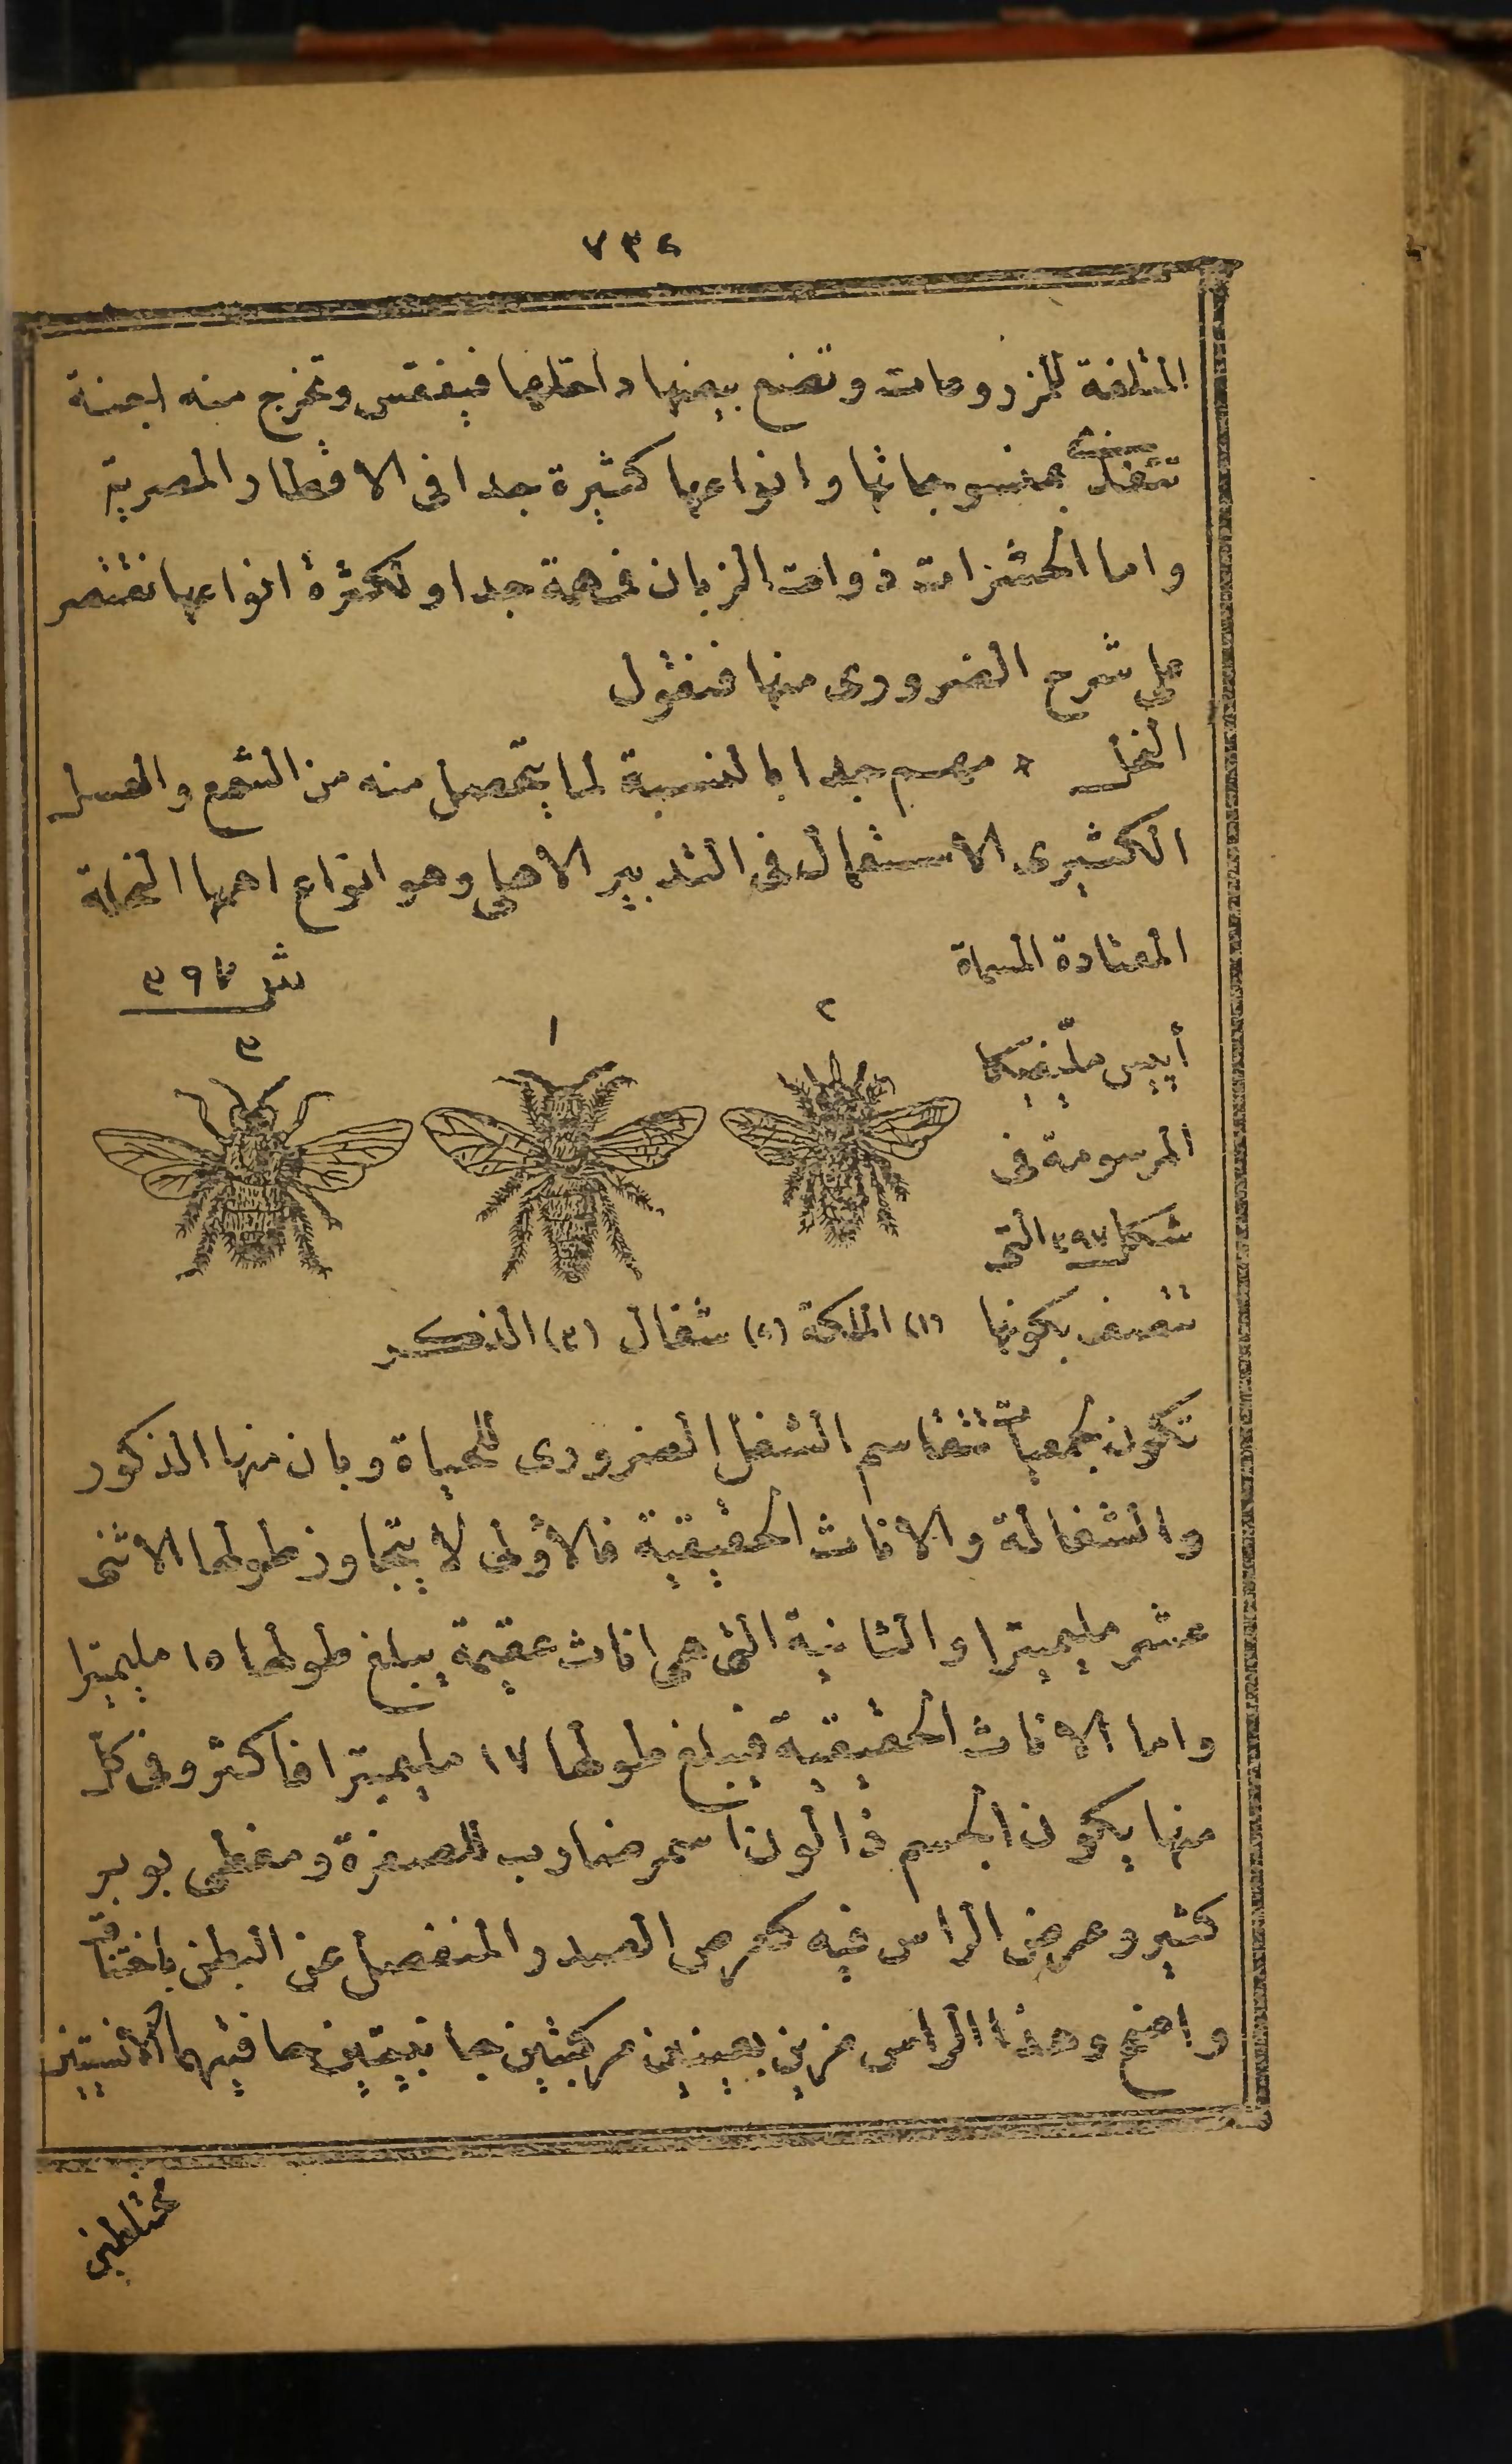 ٧٣٤
المتلفة للمزروعات وتضع بيضها داخلها فيفقس وتخرج منه اجنة
تتغذى بمنسوجاتها وانواعها كثيرة جدا فى الاقطار المصرية
واما الحشرات ذوات الزبان فمهمة جدا ولكثرة انواعها نقتصر
على شرح الضرورى منها فنقول
النحل * مهم جدا بالنسبة لما يتحصل منه من الشمع والعسل
الكثيرى الاستعمال فى التدبير الاهلى وهو انواع اهمها النحلة
المعتادة المسماة
أپيس ملّيفيكا
المرسومة فى
شكل ٣٩٧ التى
تتصف بكونها
ش ٣٩٧
٢
١
٣
(١) الملكة (٢) شغال (٣) الذكر
تكون جمعيات تتقاسم الشغل الضرورى للحياة وبان منها الذكور
والشغالة والاناث الحقيقية فالأولى لا يتجاوز طولها الاثنى
عشر مليميترا والثانية التى هى اناث عقيمة يبلغ طولها ١٥ مليميترا
واما الاناث الحقيقية فيبلغ طولها ١٧ مليميترا فاكثر وفى كل
منها يكون الجسم ذا لون اسمر ضارب للصفرة ومغطى بوبر
كثير وعرض الراس فيه كعرض الصدر المنفصل عن البطن باختناق
واضح وهذا الراس مزين بعينين مركبتين جانبيتين حافتيهما الأنسيتين
مختلطين